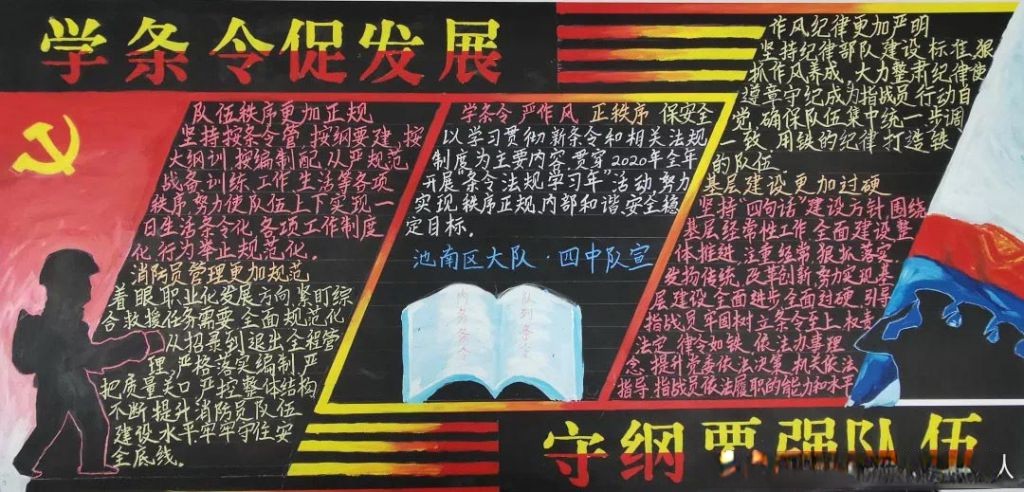 学条令促发展
队伍秩序更加正规
坚持按条令管、按纲要建、按
大纲训、按编制配，从严规范
战备训练、工作、生活等各项
秩序，努力使队伍上下实现一
日生活条令化，各项工作制度
化，行为举止规范化。
消防员管理更加规范
着眼职业化发展方向，紧盯综
合救援任务需要，全面规范化
从招录到退出全程管
理，严格落实编制，严
把质量关口，严控整体结构
不断提升消防员队伍
建设水平，牢牢守住安
全底线。
学条令 严作风 正秩序 保安全
以学习贯彻新条令和相关法规
制度为主要内容，贯穿2020年全年
开展"条令法规学习年"活动，努力
实现秩序正规，内部和谐，安全稳
定目标。
池南区大队·四中队宣
内务条令
队列条令
作风纪律更加严明
坚持纪律部队建设标准，狠
抓作风养成，大力整肃纪律，使
遵章守纪成为指战员行动自
觉，确保队伍集中统一步调
一致，用铁的纪律打造铁
的队伍。
基层建设更加过硬
坚持"四句话"建设方针，围绕
基层经常性工作，全面建设整
体推进，注重经常，狠抓落实
发扬传统，改革创新，努力实现基
层建设全面进步，全面过硬，引导
指战员牢固树立条令至上
法定，律令如铁，依法办事理
念，提升党委依法决策，机关依法
指导，指战员依法履职的能力和水平
守纲要强队伍
人